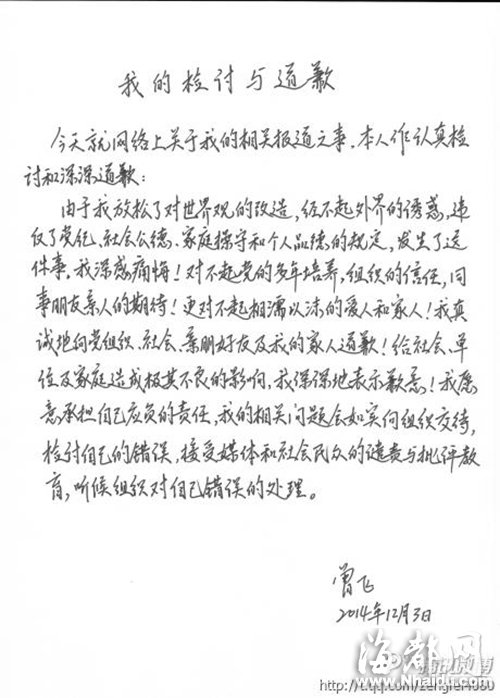 我的检讨与道歉
今天就网络上关于我的相关报道之事，本人作认真检
讨和深深道歉：
由于我放松了对世界观的改造，经不起外界的诱惑，违
反了党纪、社会公德、家庭操守和个人品德的规定，发生了这
件事。我深感痛悔！对不起党的多年培养，组织的信任，同
事朋友亲人的期待！更对不起相濡以沫的爱人和家人！我真
诚地向党组织、社会、亲朋好友及我的家人道歉！给社会、单
位及家庭造成极其不良的影响，我深深地表示歉意！我愿
意承担自己应负的责任，我的相关问题会如实向组织交待，
检讨自己的错误，接受媒体和社会民众的谴责与批评教
育，听候组织对自己错误的处理。
曾飞
2014年12月3日
海都网
www.Nhaidu.com